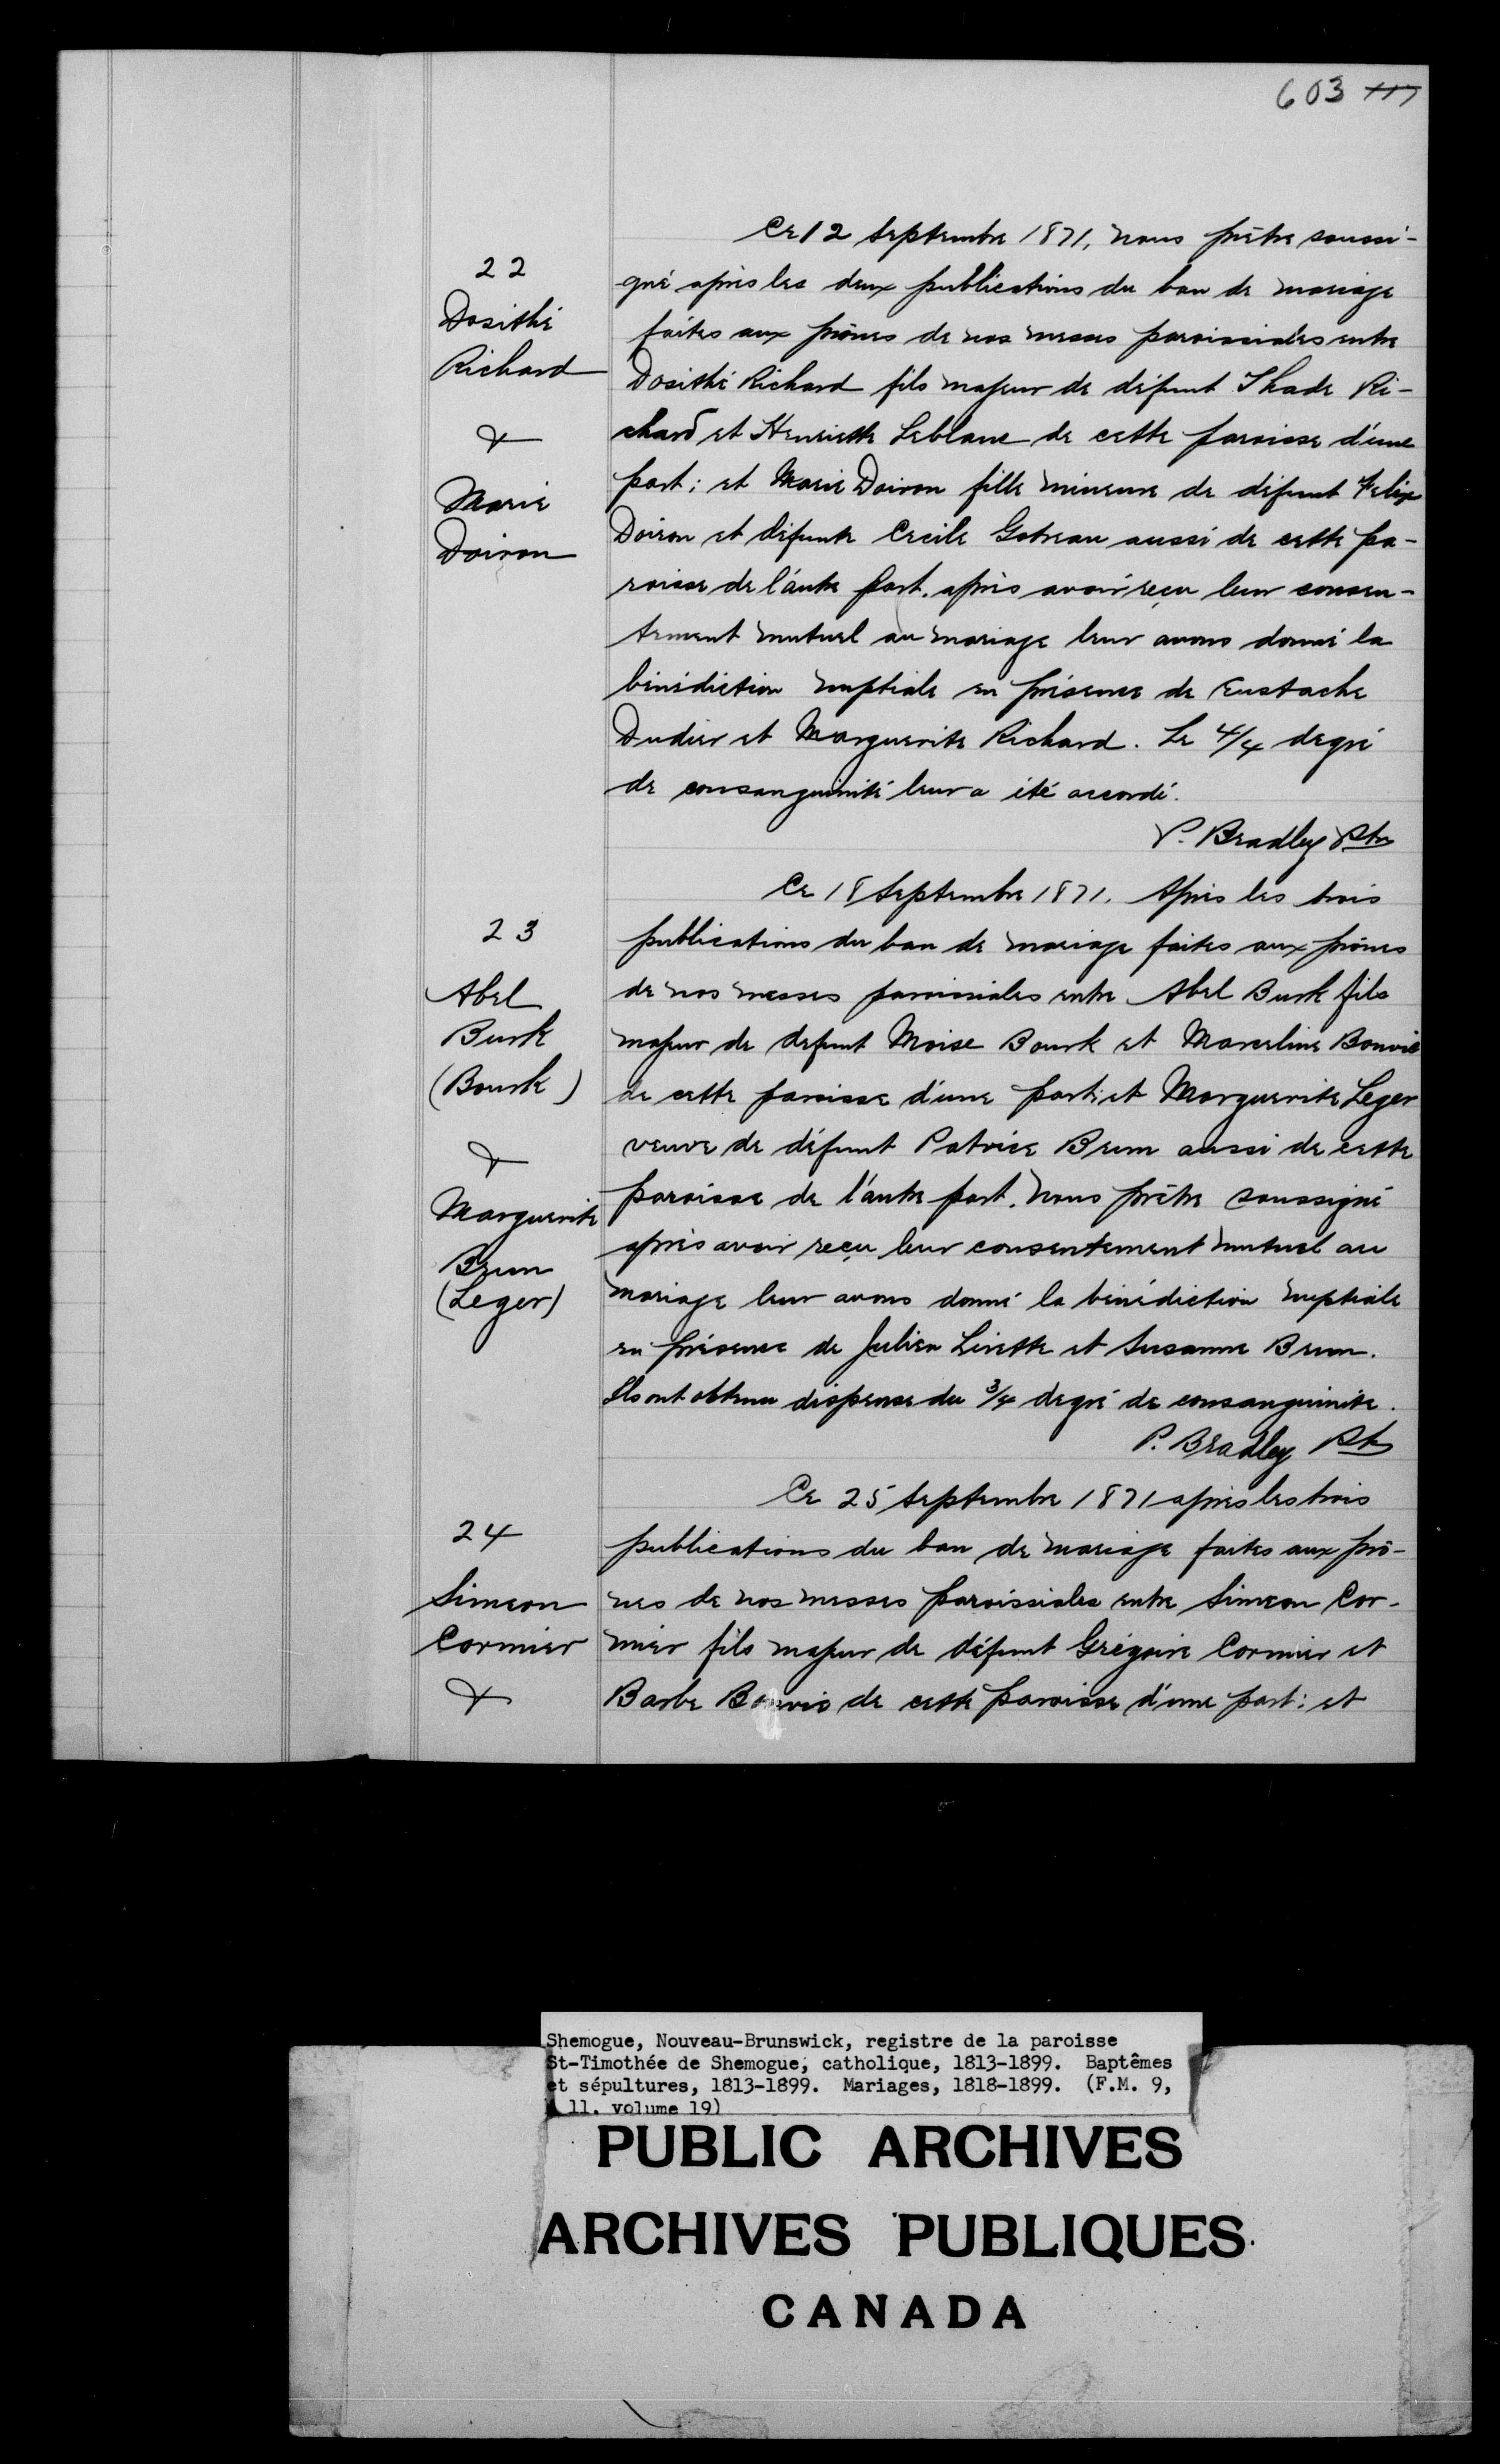 603 117
Ce 12 Septembre 1871, nous prêtre soussi-
22
gné après les deux publications du ban de mariage
Dosithé
faites aux prônes de nos messes paroissiales entre
Richard
Dosithé Richard fils majeur de défunt Thade Ri-
&
chard et Henriette Leblanc de cette paroisse d'une
Marie
part; et Marie Doiron fille mineure de défunt Felix
Doiron
Doiron et défunte Cecile Gotreau aussi de cette pa-
roisse de l'autre part. après avoir reçu leur consen-
tement mutuel au mariage leur avons donné la
bénédiction nuptiale en présence de Eustache
Dudier et Marguerite Richard. Le 4/4 degré
de consanguinité leur a été accordé.
P. Bradley Ptre
Ce 18 Septembre 1871. Après les trois
23
publications du ban de mariage faites aux prônes
Abel
de nos messes paroissiales entre Abel Burk fils
Burk
majeur de defunt Moise Bourk et Marceline Bouvié
(Bourk)
de cette paroisse d'une part; et Marguerite Leger
&
veuve de défunt Patrice Brun aussi de cette
Marguerite
paroisse de l'autre part. Nous prêtre soussigné
Brun
après avoir reçu leur consentement mutuel au
(Leger)
mariage leur avons donné la bénédiction nuptiale
en présence de Julien Lirette et Susanne Brun.
Ils ont obtenu dispense du 3/4 degré de consanguinite.
P. Bradley Ptr
Ce 25 Septembre 1871 après les trois
24
publications du ban de mariage faites aux prô-
Simeon
nes de nos messes paroissiales entre Simeon Cor-
Cormier
mier fils majeur de défunt Grégoire Cormier et
&
Barbe de cette paroisse d'une part: et
Shemogue, Nouveau-Brunswick, registre de la paroisse
St-Timothée de Shemogue, catholique, 1813-1899. Baptêmes
et sépultures, 1813-1899. Mariages, 1818-1899. (F.M. 9,
A 11. volume 19)
PUBLIC ARCHIVES
ARCHIVES PUBLIQUES
CANADA